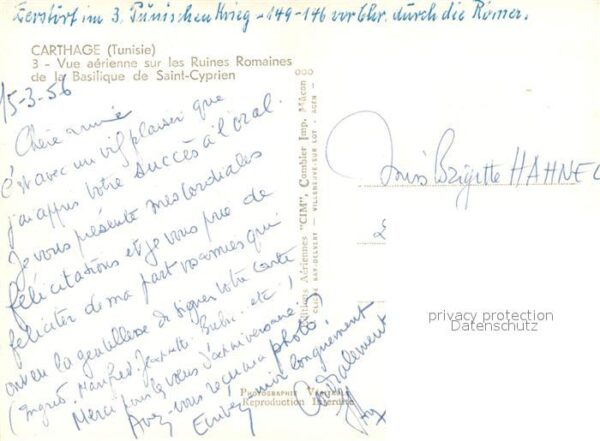 Zerstört im 3. Punischen Krieg - 149-146 vor Chr. durch die Römer.
CARTHAGE (Tunisie)
3 - Vue aérienne sur les Ruines Romaines
de la Basilique de Saint-Cyprien
15-3-56
Chère amie
C'est avec un vif plaisir que
j'ai appris votre succès à l'oral.
Je vous présente mes cordiales
félicitations et je vous prie de
féliciter de ma part vos amies qui
ont eu la gentillesse de signer votre carte
(Ingrid, Manfred, Jeannette etc!)
Merci pour les voeux d'anniversaire!
Avez-vous reçu ma photo?
Ecrivez-moi longuement
Cordialement
Editions Aériennes "CIM", Combier Imp. Mâcon
CLICHÉ RAY-DELVERT - VILLENEUVE-SUR-LOT - AGEN -
Photographie Véritable
Reproduction Interdite
Brigitte HAHNEL
privacy protection
Datenschutz